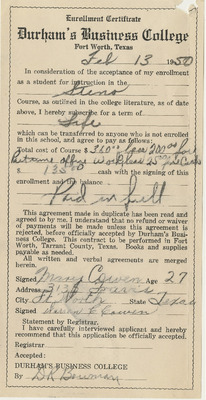 Enrollment Certificate
Durham's Business College
Fort Worth, Texas
Feb 13 1950
In consideration of the acceptance of my enrollment
as a student for instruction in the
Steno
Course, as outlined in the college literature, as of date
above, I hereby subscribe for a term of
Life
which can be transferred to anyone who is not enrolled
in this school, and agree to pay as follows:
Total cost of Course $
office work
$ 135.00 cash with the signing of this
enrollment and the balance
Paid in full
This agreement made in duplicate has been read and
agreed to by me. I understand that no refund or waiver
of payments will be made unless this agreement is
rejected, before officially accepted by Durham's Busi-
ness College. This contract to be performed in Fort
Worth, Tarrant County, Texas. Books and supplies
payable as needed.
All written and verbal agreements are merged
herein.
Signed Cowen Age 27
Address Travis
City Ft. Worth State Texas
Signed Cowen
Statement by Registrar.
I have carefully interviewed applicant and hereby
recommend that this application be officially accepted.
Registrar
Accepted:
DURHAM'S BUSINESS COLLEGE
By Bowman